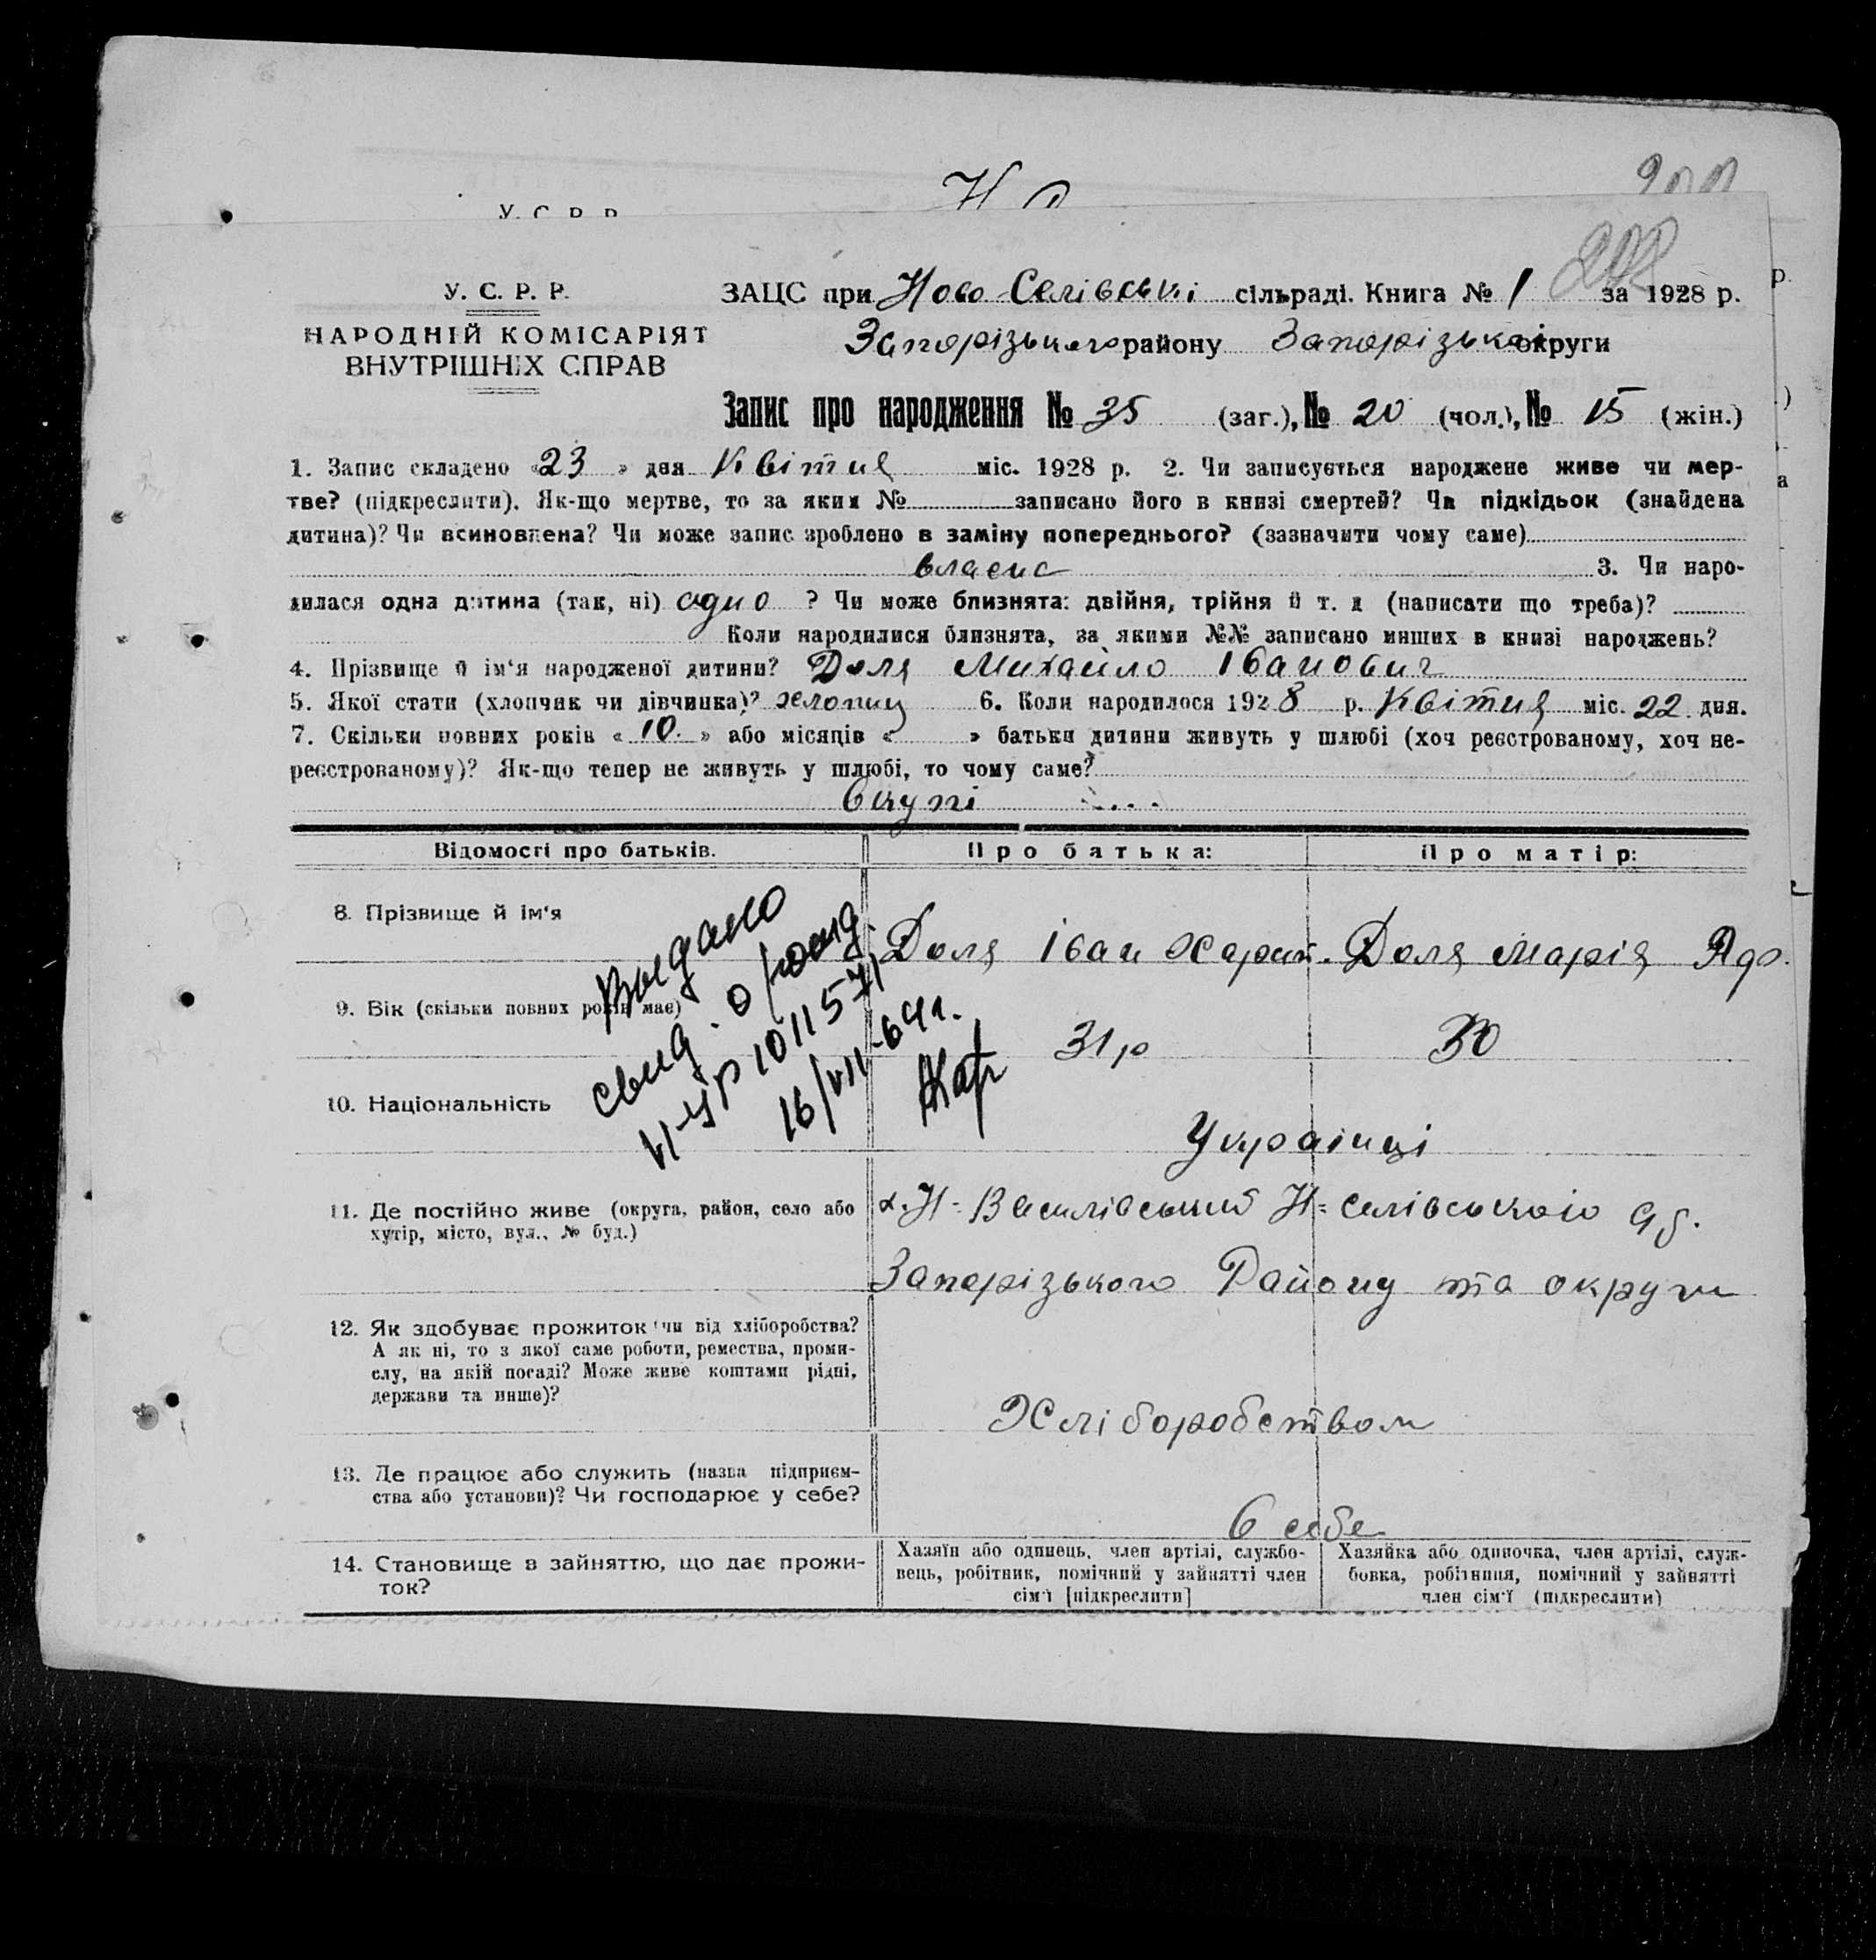 У. С. Р. Р.
ЗАЦС при Ново-Селівські сільраді. Книга № 1 за 1928 р.
НАРОДНІЙ КОМІСАРІЯТ
ВНУТРІШНІХ СПРАВ
Запорізького району Запорізької округи
Запис про народження № 35 (заг.), № 20 (чол.), № 15 (жін.)
1. Запис складено «23» дня Квітня міс. 1928 р. 2. Чи записується народжене живе чи мер-
тве? (підкреслити). Як-що мертве, то за яким № записано його в книзі смертей? Чи підкідьок (знайдена
дитина)? Чи всиновлена? Чи може запис зроблено в заміну попереднього? (зазначити чому саме)
власне 3. Чи наро-
дилася одна дитина (так, ні) одно ? Чи може близнята: двійня, трійня й т. д (написати що треба)?
Коли народилися близнята, за якими №№ записано инших в книзі народжень?
4. Прізвище й ім'я народженої дитини? Доля Михайло Іванович
5. Якої стати (хлопчик чи дівчинка)? хлопиц 6. Коли народилося 1928 р. Квітня міс. 22 дня.
7. Скільки повних років «10.» або місяців « » батьки дитини живуть у шлюбі (хоч реєстрованому, хоч не-
реєстрованому)? Як-що тепер не живуть у шлюбі, то чому саме?
вкупі
Відомості про батьків. Про батька: Про матір:
8. Прізвище й ім'я Доля Іван Харит. Доля Марія
9. Вік (скільки повних років має) 31р 30
10. Національність Українці
Выдано
свид. о рожд.
1011571
16/VII-64г.
11. Де постійно живе (округа, район, село або
хутір, місто, вул., № буд.)
х. Н-Василівський Н-Селівської
Запорізького Району та округи
12. Як здобуває прожиток чи від хліборобства?
А як ні, то з якої саме роботи, ремества, проми-
слу, на якій посаді? Може живе коштами рідні,
держави та инше)?
Хліборобством
13. Де працює або служить (назва підприєм-
ства або установи)? Чи господарює у себе?
в себе
14. Становище в зайняттю, що дає прожи-
ток?
Хазяїн або одинець, член артілі, службо-
вець, робітник, помічний у зайнятті член
сім'ї [підкреслити]
Хазяйка або одиночка, член артілі, служ-
бовка, робітниця, помічний у зайнятті
член сім'ї (підкреслити)